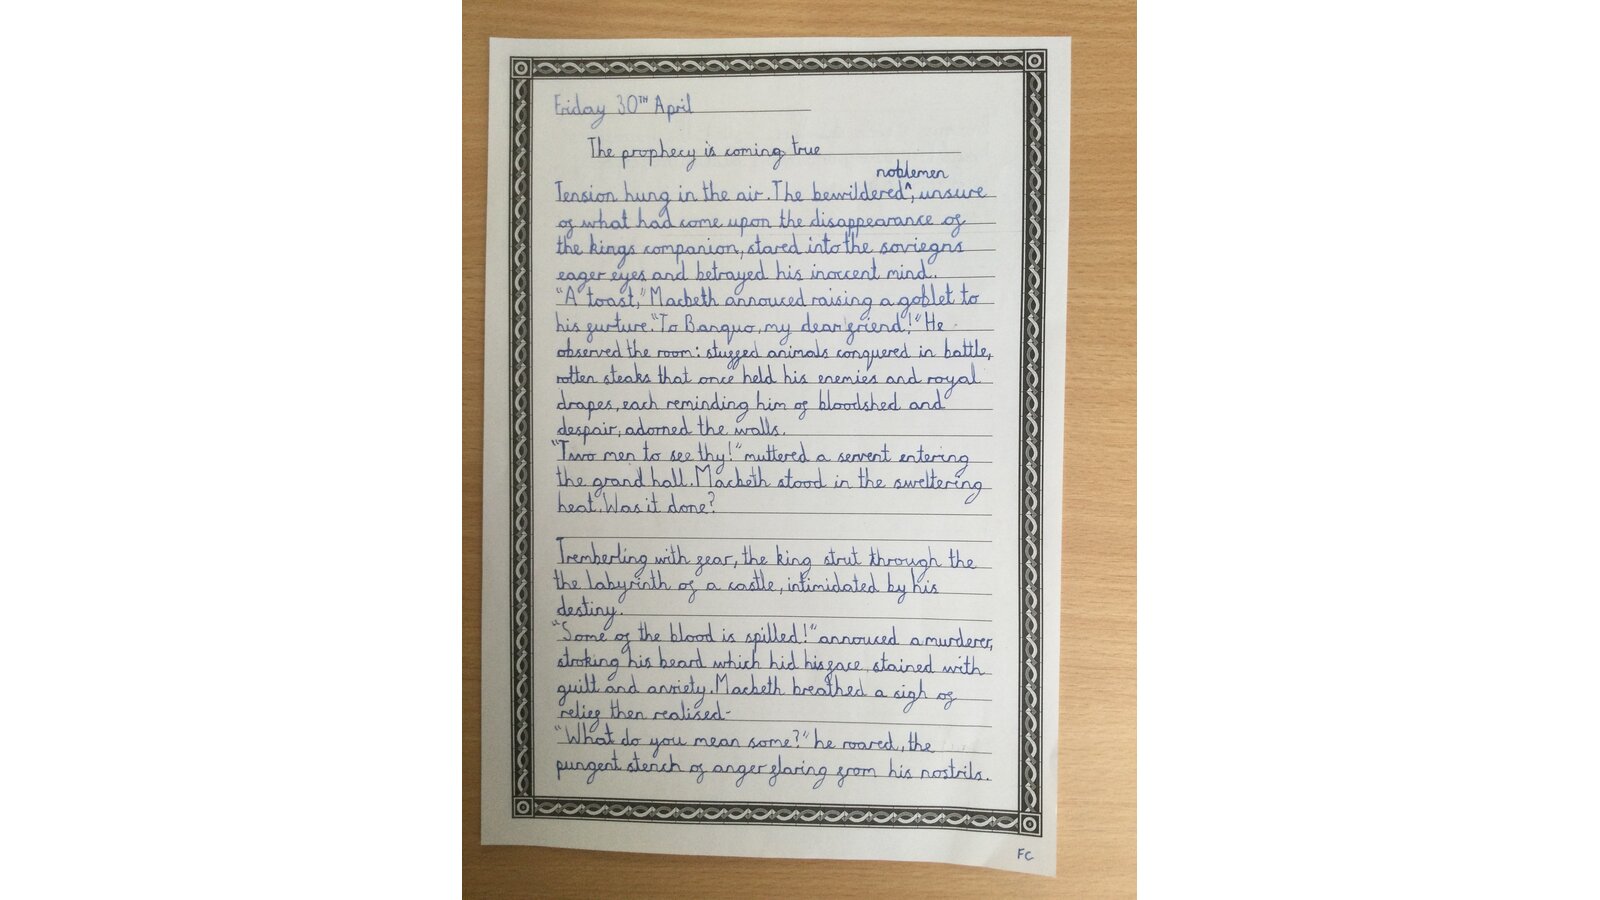 Friday 30TH April
The prophecy is coming true
noblemen
Tension hung in the air. The bewildered^, unsure
of what had come upon the disappearance of
the kings companion, stared into the soviegns
eager eyes and betrayed his inoccent mind.
"A toast," Macbeth annouced raising a goblet to
his furture. "To Banquo, my dear friend!" He
observed the room: stuffed animals conquered in battle,
rotten steaks that once held his enemies and royal
drapes, each reminding him of bloodshed and
despair, adorned the walls.
"Two men to see thy!" muttered a servent entering
the grand hall. Macbeth stood in the sweltering
heat. Was it done?
Tremberling with fear, the king strut through the
the labyrinth of a castle, intimidated by his
destiny.
"Some of the blood is spilled!" annouced a murderer,
stroking his beard which hid his face stained with
guilt and anxiety. Macbeth breathed a sigh of
relief then realised-
"What do you mean some?" he roared, the
pungent stench of anger flaring from his nostrils.
FC